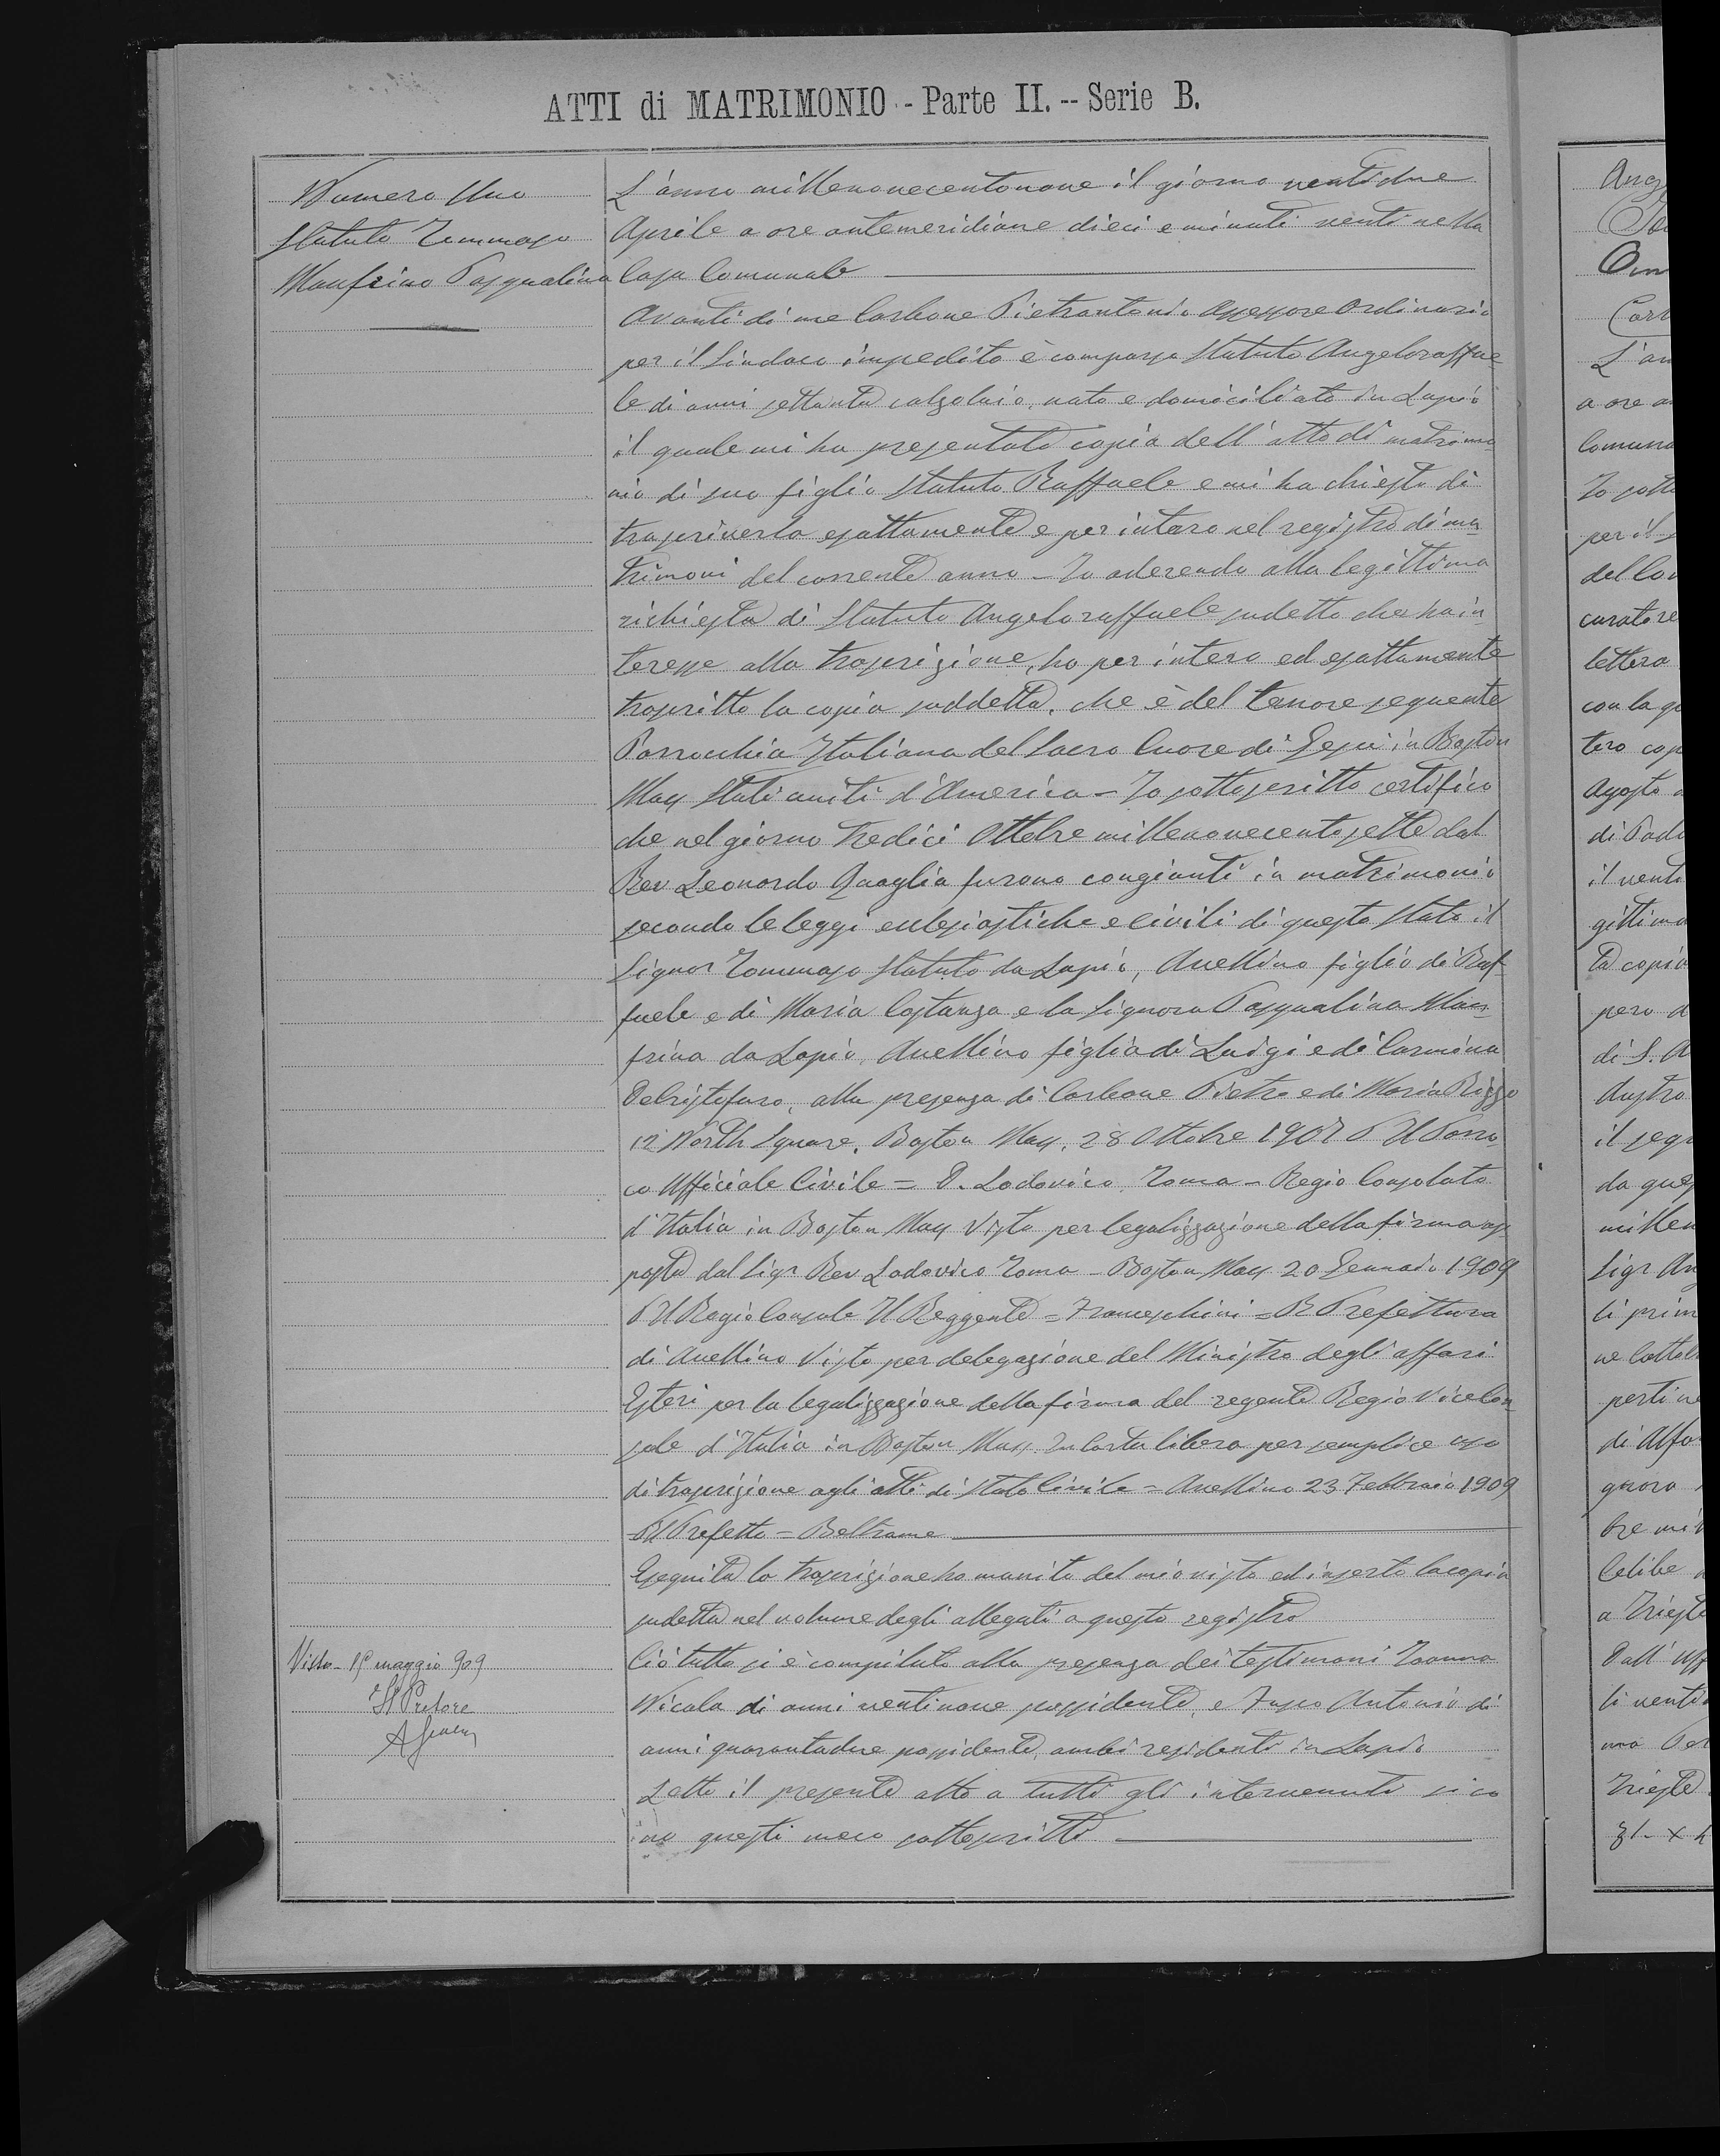 ATTI di MATRIMONIO - Parte II. -- Serie B.
Numero Uno
Statuto Tommaso
Manfrino Pasqualina
L'anno millenovecentonove il giorno ventidue
Aprile a ore antemeridiane dieci e minuti venti nella
Casa Comunale
Avanti di me Carbone Pietrantonio Assessore Ordinario
per il Sindaco impedito è comparso Statuto Angeloraffae
le di anni settanta calzolaio, nato e domiciliato in Lapio
il quale mi ha presentato copia dell'atto di matrimo
nio di suo figlio Statuto Raffaele e mi ha chiesto di
trascriverlo esattamente e per intero nel registro di ma
trimoni del corrente anno - Io aderendo alla legittima
richiesta di Statuto Angeloraffaele sudetto che ha in
teresse alla trascrizione, ho per intero ed esattamente
trascritto la copia suddetta, che è del tenore seguente
Parrocchia Italiana del Sacro Cuore di Gesù in Boston
Mass Stati uniti d'America - Io sottoscritto certifico
che nel giorno tredici Ottobre millenovecentosette dal
Rev Leonardo Quaglia furono congiunti in matrimonio
secondo le leggi ecclesiastiche e civili di questo Stato il
Signor Tommaso Statuto da Lapio, Avellino figlio di Raf
faele e di Maria Costanza e la Signora Pasqualina Man
frina da Lapio, Avellino figlia di Luigi e di Carmina
Decristofaro, alla presenza di Carbone Pietro e di Maria Rizzo
12 North Square, Boston Mass, 28 Ottobre 1907 P Il Parro
co Ufficiale Civile = P. Lodovico Toma - Regio Consolato
d'Italia in Boston Mass Visto per legalizzazione della firma ap
posta dal Sigr Rev Lodovico Toma - Boston Mass 20 Gennaio 1909
P Il Regio Console Il Reggente = Franceschini = R Prefettura
di Avellino Visto per delegazione del Ministro degli affari
Esteri per la legalizzazione della firma del regente Regio Vice Con
sole d'Italia in Boston Mass In Carta libera per semplice uso
di trascrizione agli atti di Stato Civile = Avellino 23 Febbraio 1909
P Il Prefetto = Beltrame
Eseguita la trascrizione ho munito del mio visto ed inserto la copia
sudetta nel volume degli allegati a questo registro
Ciò tutto si è compilato alla presenza dei testimoni Ioanna
Nicola di anni ventinove possidente, e Fusco Antonio di
anni quarantadue possidente, ambi residenti in Lapio
Letto il presente atto a tutti gli intervenuti si
questi meco sottoscritti
Visto - 15 maggio 909
Il Pretore
Ang
Om
Carb
L'an
a ore a
Comuna
Io sotto
per il s
del Com
curatore
lettera
con la qu
tero cop
Agosto
di Pado
il venti
gittima
ta copia
pero d
di S. A
Austro
il segu
da ques
millen
Sigr An
li prim
ne Cattol
perti ne
di Alfo
gnora
bre mi
Celibe
a Trieste
Dall' Uff
li venti
Trieste